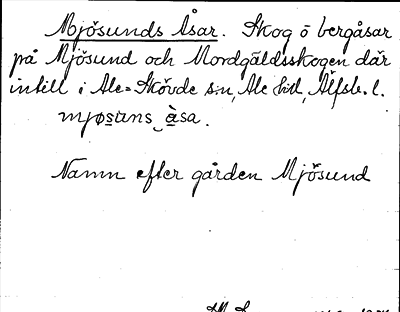 Mjösunds Åsar. Skog o bergåsar
på Mjösund och Mordgäldsskogen där
intill i Ale-Skövde sn, Ale hd, Älfsb. l.
mjøsuns åsa.
Namn efter gården Mjösund